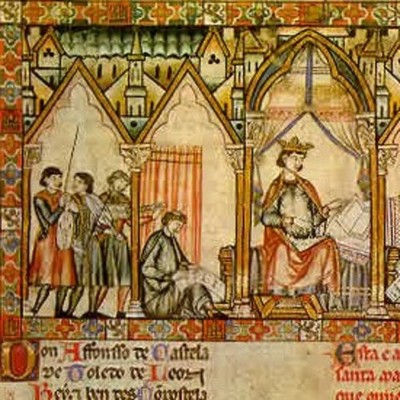 Don Affonsso de Castela
de Toledo de Leon
Rey e ben des Conpostela
Esta e a
santa
que